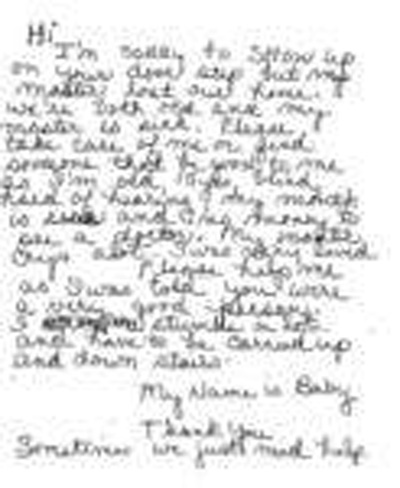 Hi
I'm sorry to show up
on your door step but my
master lost our home.
we're both old and my
master is sick. Please
take care of me or find
someone that is good to me
as I'm old, blind
hard of hearing my master
is and no money to
see a doctor. My master
cries a lot I was
Please help me
as I was told you were
a very good person.
I stumble a lot
and have to be carried up
and down stairs.
My Name is Baby
Thank You
Sometimes we just need help